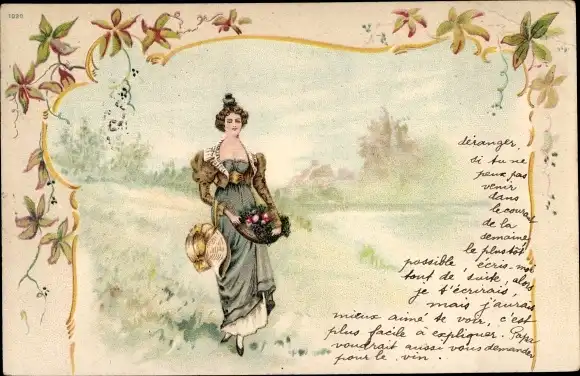 1096
déranger,
si tu ne
peux pas
venir
dans
le courant
de la
semaine,
le plus tôt
possible écris-moi
tout de suite, alors
je t'écrirais,
mais j'aurais
mieux aimé te voir, c'est
plus facile à expliquer. Papa
voudrait aussi vous demander
pour le vin.